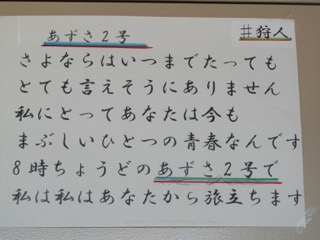 あずさ2号
#狩人
さよならはいつまでたっても
とても言えそうにありません
私にとってあなたは今も
まぶしいひとつの青春なんです
8時ちょうどのあずさ2号で
私は私はあなたから旅立ちます